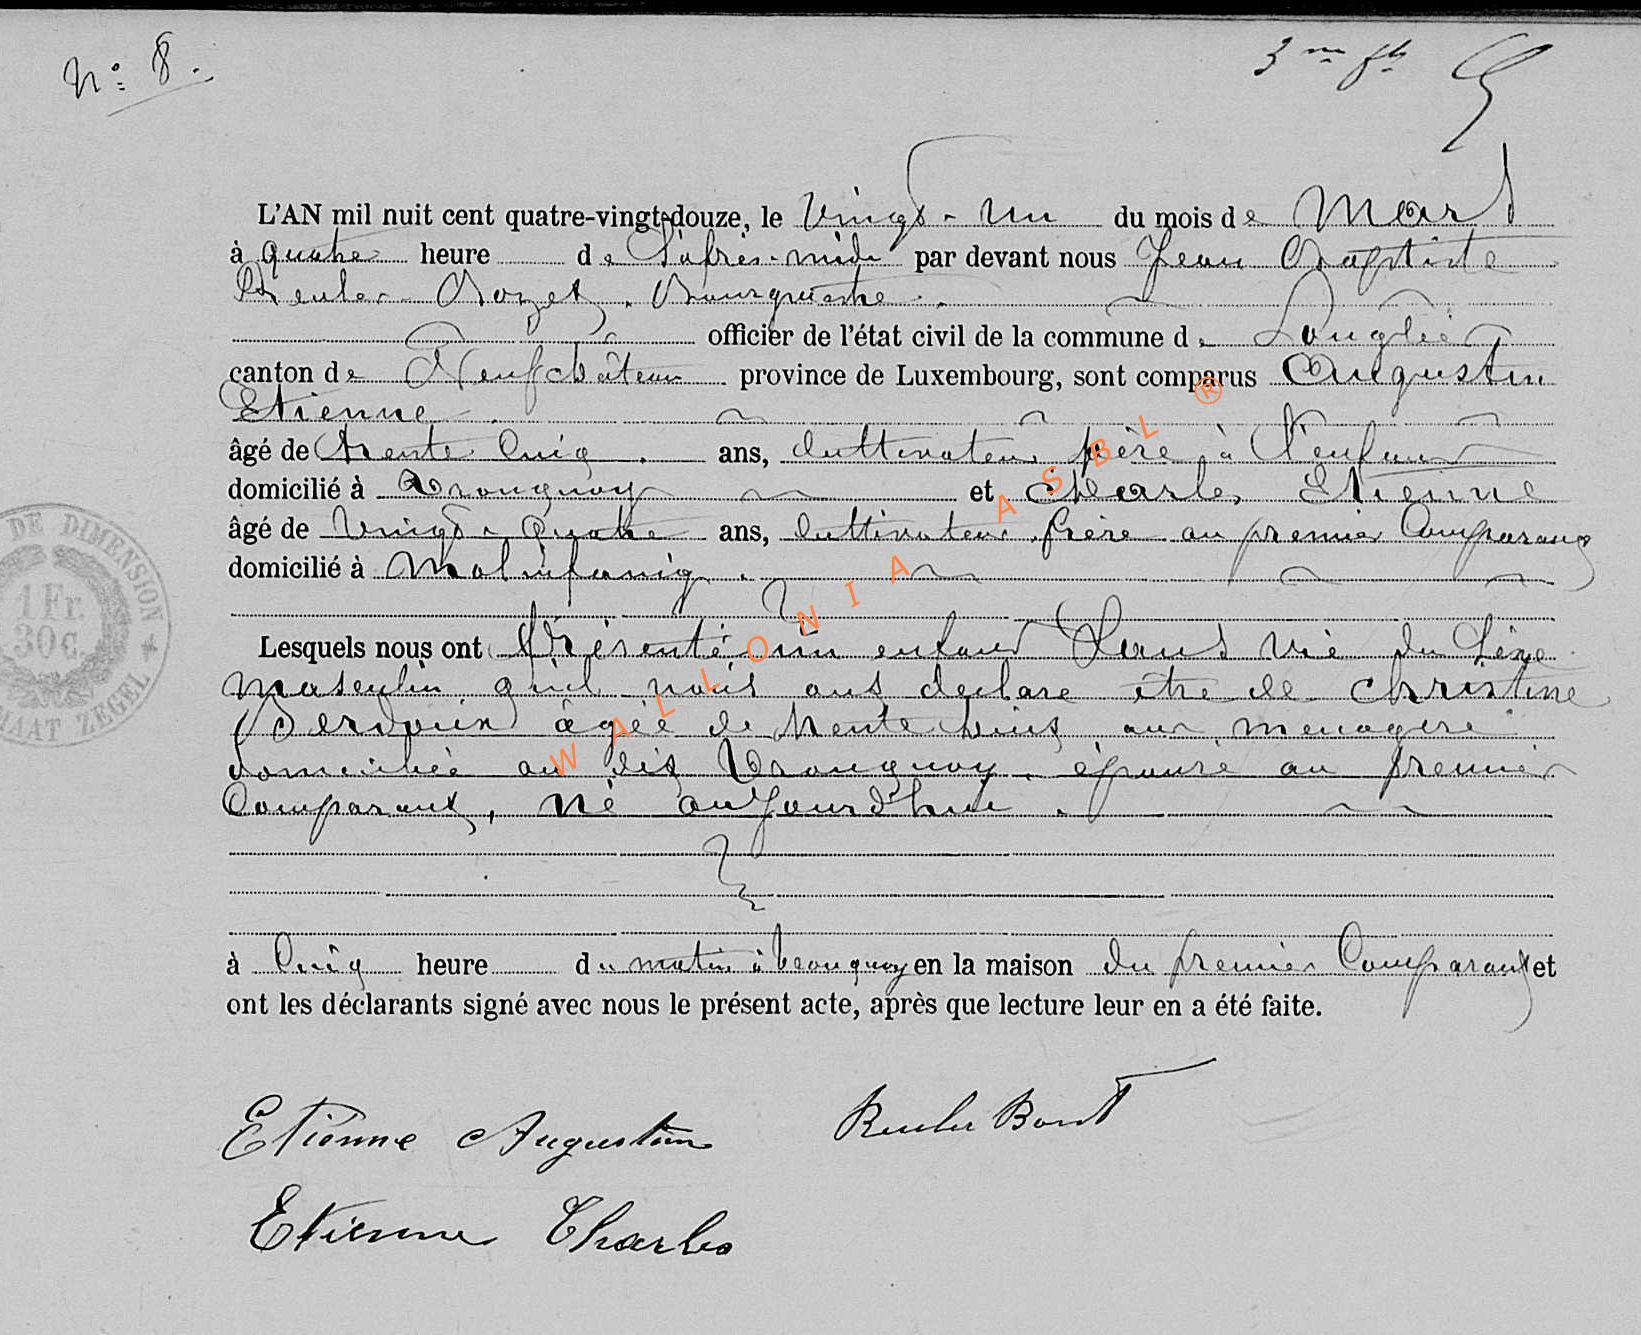 N° 8.
3me f^t
L'AN mil huit cent quatre-vingt-douze, le Vingt-un du mois de Mars
à quatre heure de l'après-midi par devant nous Jean Baptiste
Reuler Bozet, Bourgmestre.
officier de l'état civil de la commune de Longlier
canton de Neufchâteau province de Luxembourg, sont comparus Augustin
Etienne
âgé de trente cinq ans, Cultivateur père à l'enfant
domicilié à Tronquoy et Charles Etienne
âgé de Vingt-quatre ans, Cultivateur frère au premier Comparant
domicilié à Molinfaing.
Lesquels nous ont présenté un enfant sans vie du sexe
masculin qu'il nous ont declare être de Christine
âgée de trente ans menagere
domiciliée au dit Tronquoy, épouse au premier
Comparant, né aujourd'hui.
à Cinq heure du matin à Tronquoy en la maison du premier Comparant et
ont les déclarants signé avec nous le présent acte, après que lecture leur en a été faite.
Etienne Augustin
Reuler
Etienne Charles
DE DIMENSION
1 Fr.
30 c.
MAAT ZEGEL
WALLONIA ASBL ®